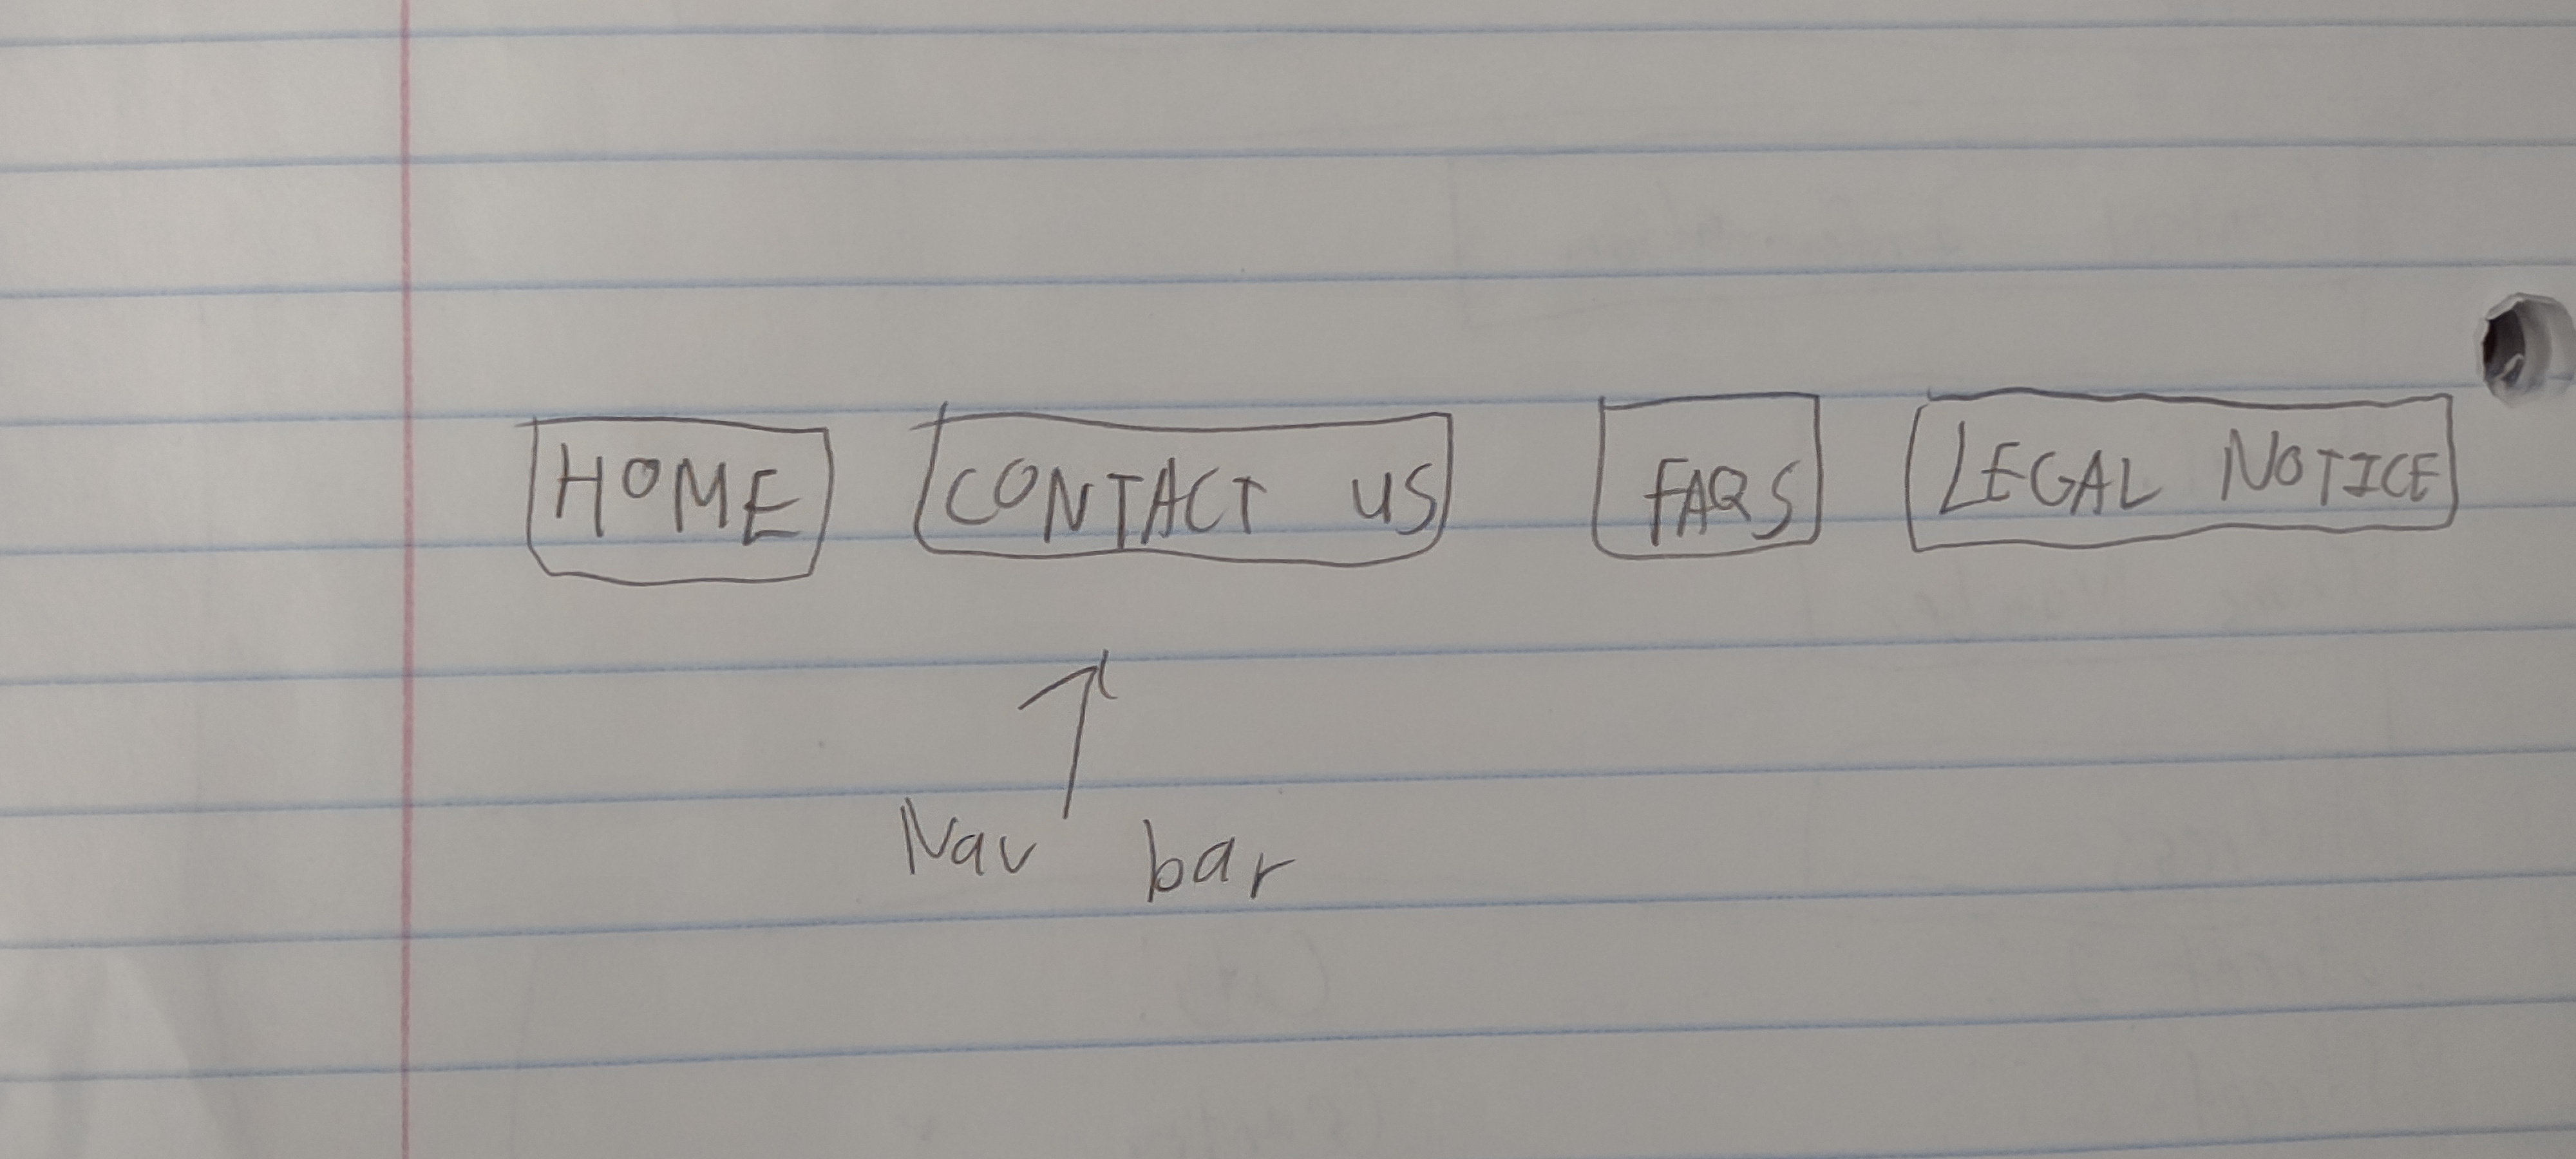 HOME CONTACT US FAQS LEGAL NOTICE
Nav bar